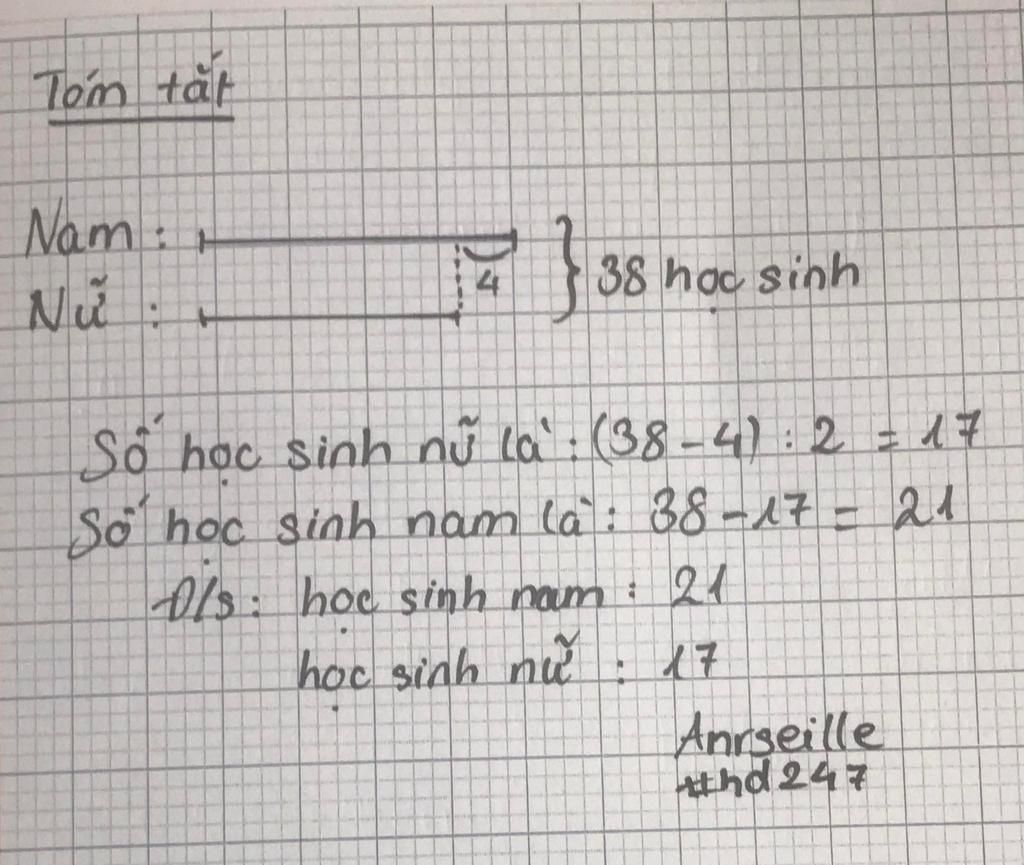 Tóm tắt
Nam :
4
} 38 học sinh
Nữ :
Số học sinh nữ là : (38 - 4) : 2 = 17
Số học sinh nam là : 38 - 17 = 21
Đ/s : học sinh nam : 21
học sinh nữ : 17
Anrseille
#hd247